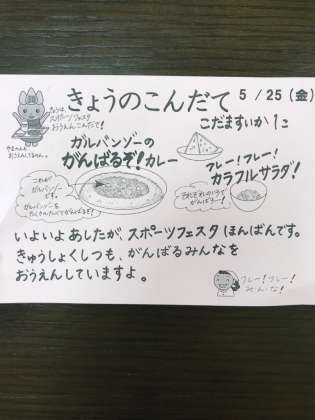 きょうのこんだて 5/25(金)
きょうは、
スポーツフェスタ
おうえんこんだて!
こだますいか 1こ
ガルバンゾーの
がんばるぞ!カレー
フレー!フレー!
カラフルサラダ!
これが
ガルバンゾー
です。
ガルバンゾーを
たくさんたべてがんばるぞ!
それぞれのいろで
がんばろー!
いよいよあしたが、スポーツフェスタほんばんです。
きゅうしょくしつも、がんばるみんなを
おうえんしていますよ。
フレー!フレー!
み・ん・な!